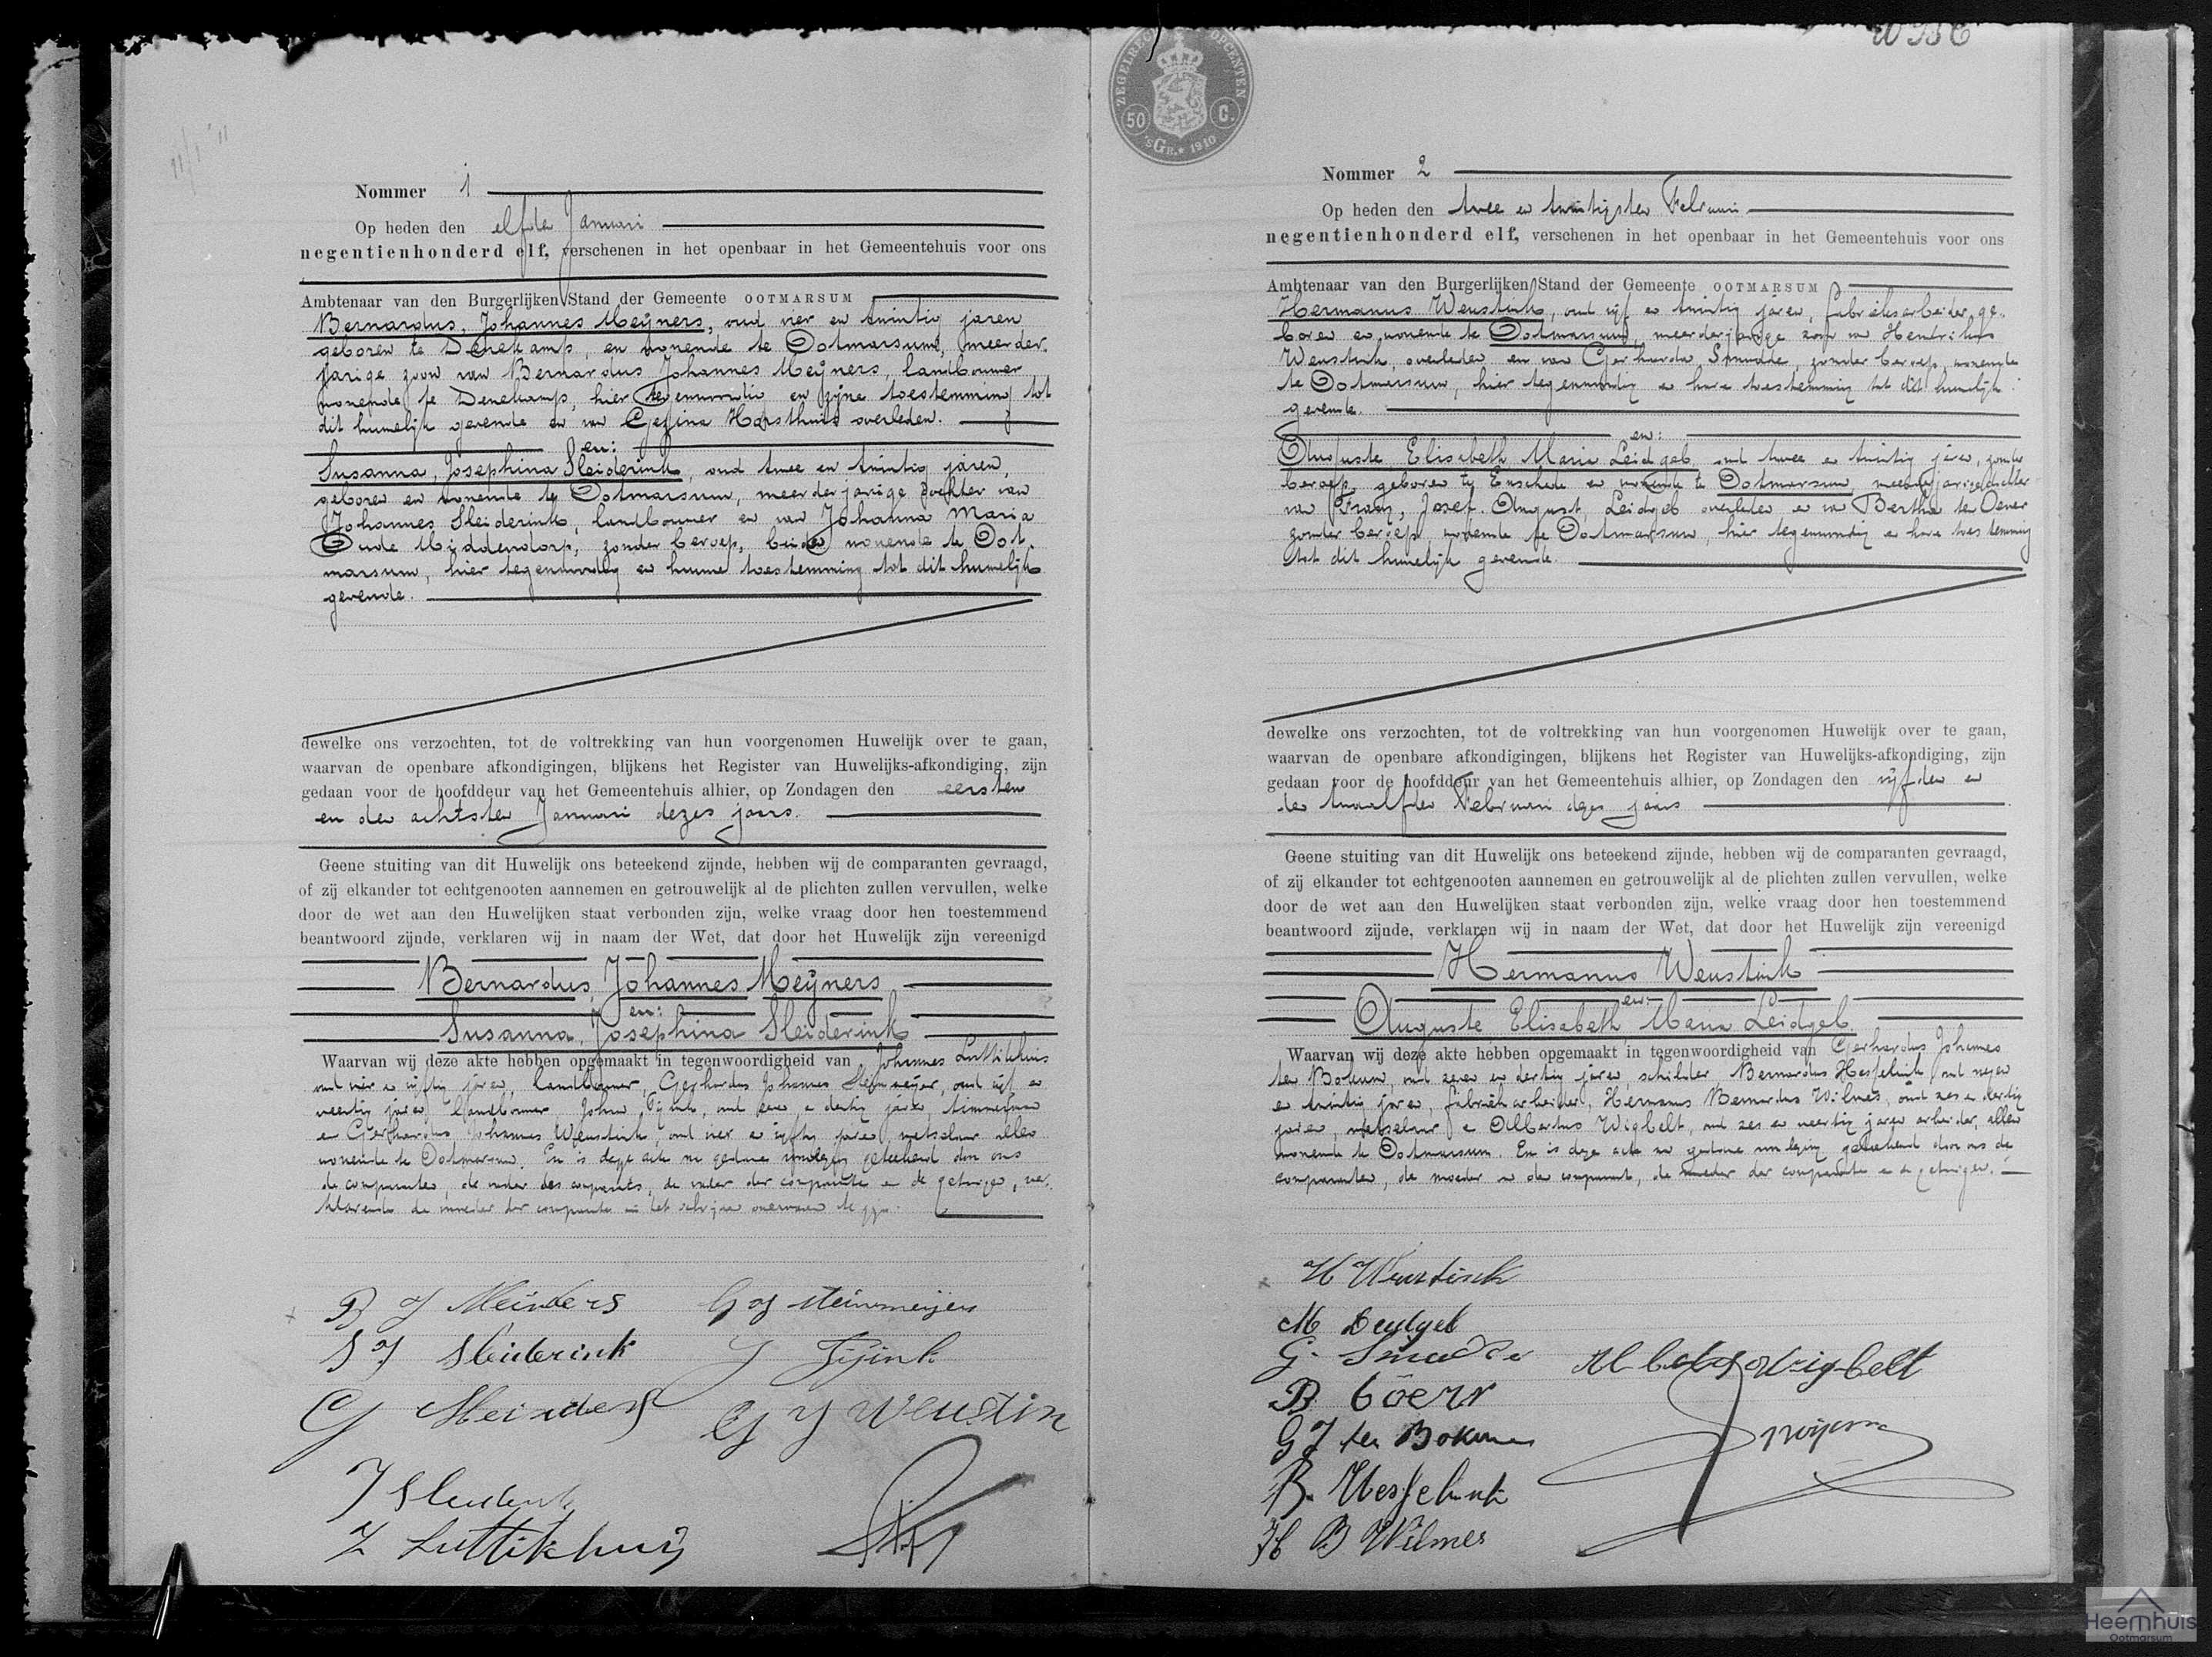 11/1 '11
Nommer 1
Op heden den elfde Januari
negentienhonderd elf, verschenen in het openbaar in het Gemeentehuis voor ons
Ambtenaar van den Burgerlijken Stand der Gemeente OOTMARSUM
Bernardus, Johannes Meijners, oud vier en twintig jaren
geboren te Denekamp, en wonende te Ootmarsum, meerder-
jarige zoon van Bernardus Johannes Meijners, landbouwer
wonende te Denekamp, hier tegenwoordig en zijne toestemming tot
dit huwelijk gevende en van Gezina Horsthuis overleden.
en:
Susanna, Josephina Sleiderink, oud twee en twintig jaren,
geboren en wonende te Ootmarsum, meerderjarige dochter van
Johannes Sleiderink, landbouwer en van Johanna Maria
Oude Middendorp, zonder beroep, beiden wonende te Oot-
marsum, hier tegenwoordig en hunne toestemming tot dit huwelijk
gevende.
dewelke ons verzochten, tot de voltrekking van hun voorgenomen Huwelijk over te gaan,
waarvan de openbare afkondigingen, blijkens het Register van Huwelijks-afkondiging, zijn
gedaan voor de hoofddeur van het Gemeentehuis alhier, op Zondagen den eersten
en den achtsten Januari dezes jaars.
Geene stuiting van dit Huwelijk ons beteekend zijnde, hebben wij de comparanten gevraagd,
of zij elkander tot echtgenooten aannemen en getrouwelijk al de plichten zullen vervullen, welke
door de wet aan den Huwelijken staat verbonden zijn, welke vraag door hen toestemmend
beantwoord zijnde, verklaren wij in naam der Wet, dat door het Huwelijk zijn vereenigd
Bernardus, Johannes Meijners
en:
Susanna, Josephina Sleiderink
Waarvan wij deze akte hebben opgemaakt in tegenwoordigheid van Johannes Luttikhuis
oud vier en vijftig jaren, landbouwer, Gerhardus Johannes Steinmeijer, oud vijf en
veertig jaren, landbouwer, Johan Tijink, oud een en dertig jaren, timmerman
en Gerhardus Johannes Weustink, oud vier en vijftig jaren, metselaar allen
wonende te Ootmarsum. En is deze acte na gedane voorlezing geteekend door ons
de comparanten, de vader des comparants, de vader der comparante en de getuigen, ver-
klarende de moeder der comparante het schrijven onervaren te zijn.
B J Meinders
G J Steinmeijer
S J Sleiderink
J Tijink
G Meinders
G J Weustin
J Sleiderink
J Luttikhuis
W 536
ZEGELRECHT OPCENTEN
50 C.
'sGR. 1910
Nommer 2
Op heden den twee en twintigsten Februari
negentienhonderd elf, verschenen in het openbaar in het Gemeentehuis voor ons
Ambtenaar van den Burgerlijken Stand der Gemeente OOTMARSUM
Hermanus Weustink, oud vijf en twintig jaren, fabrieksarbeider, ge-
boren en wonende te Ootmarsum, meerderjarige zoon van Hendrikus
Weustink, overleden en van Gerharda Smudde, zonder beroep, wonende
te Ootmarsum, hier tegenwoordig en hare toestemming tot dit huwelijk
gevende.
en:
Auguste Elisabeth Maria Leidgeb, oud twee en twintig jaren, zonder
beroep, geboren te Enschede en wonende te Ootmarsum, meerderjarige dochter
van Franz, Jozef, August, Leidgeb overleden en van Bertha ten Oever
zonder beroep, wonende te Ootmarsum, hier tegenwoordig en hare toestemming
tot dit huwelijk gevende.
dewelke ons verzochten, tot de voltrekking van hun voorgenomen Huwelijk over te gaan,
waarvan de openbare afkondigingen, blijkens het Register van Huwelijks-afkondiging, zijn
gedaan voor de hoofddeur van het Gemeentehuis alhier, op Zondagen den vijfden en
den twaalfden Februari dezes jaars
Geene stuiting van dit Huwelijk ons beteekend zijnde, hebben wij de comparanten gevraagd,
of zij elkander tot echtgenooten aannemen en getrouwelijk al de plichten zullen vervullen, welke
door de wet aan den Huwelijken staat verbonden zijn, welke vraag door hen toestemmend
beantwoord zijnde, verklaren wij in naam der Wet, dat door het Huwelijk zijn vereenigd
Hermanus Weustink
en:
Auguste Elisabeth Maria Leidgeb
Waarvan wij deze akte hebben opgemaakt in tegenwoordigheid van Gerhardus Johannes
ten Bokum, oud zeven en dertig jaren, schilder, Bernardus Hesselink, oud negen
en twintig jaren, fabriekarbeider, Hermanus Bernardus Wilmes, oud zes en dertig
jaren, metselaar en Albertus Wigbelt, oud zes en veertig jaren arbeider, allen
wonende te Ootmarsum. En is deze acte na gedane voorlezing geteekend door ons de
comparanten, de moeder van den comparant, de moeder der comparante en de getuigen.
H Weustink
M Leidgeb
G. Smudde
Albertus Wigbelt
B. t Oever
G J ten Bokum
B. Hesselink
H B Wilmes
Heemhuis
Ootmarsum